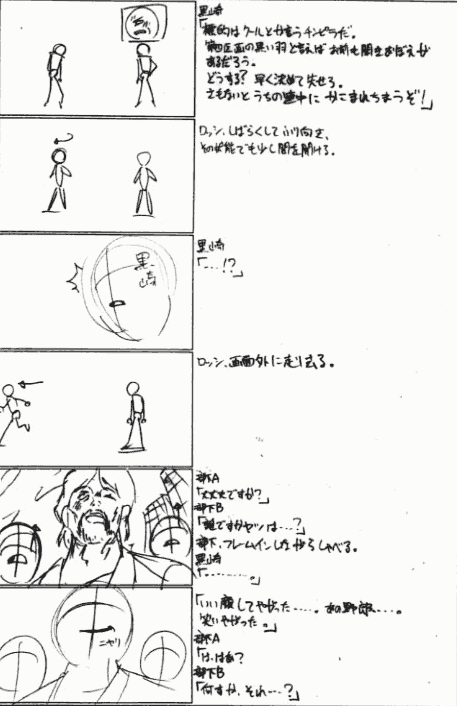 黒崎
「標的はクールとか言うチンピラだ。
第四区画の黒い羽と言えばお前も聞きおぼえが
あるだろう。
どうする？早く決めて失せろ。
さもないとうちの連中にかこまれちまうぞ！」
ロッシ、しばらくしてふり向き、
その状態でも少し間を開ける。
黒崎
「…!?」
黒崎
ロッシ、画面外に走り去る。
部下A
「大丈夫ですか？」
部下B
「誰ですかヤツは…？」
部下、フレームインしながらしゃべる。
黒崎
「………。」
「いい顔してやがった……。あの野郎…。
笑いやがった。」
ニヤリ
部下A
「は、はあ？
部下B
「何すか、それ…？」